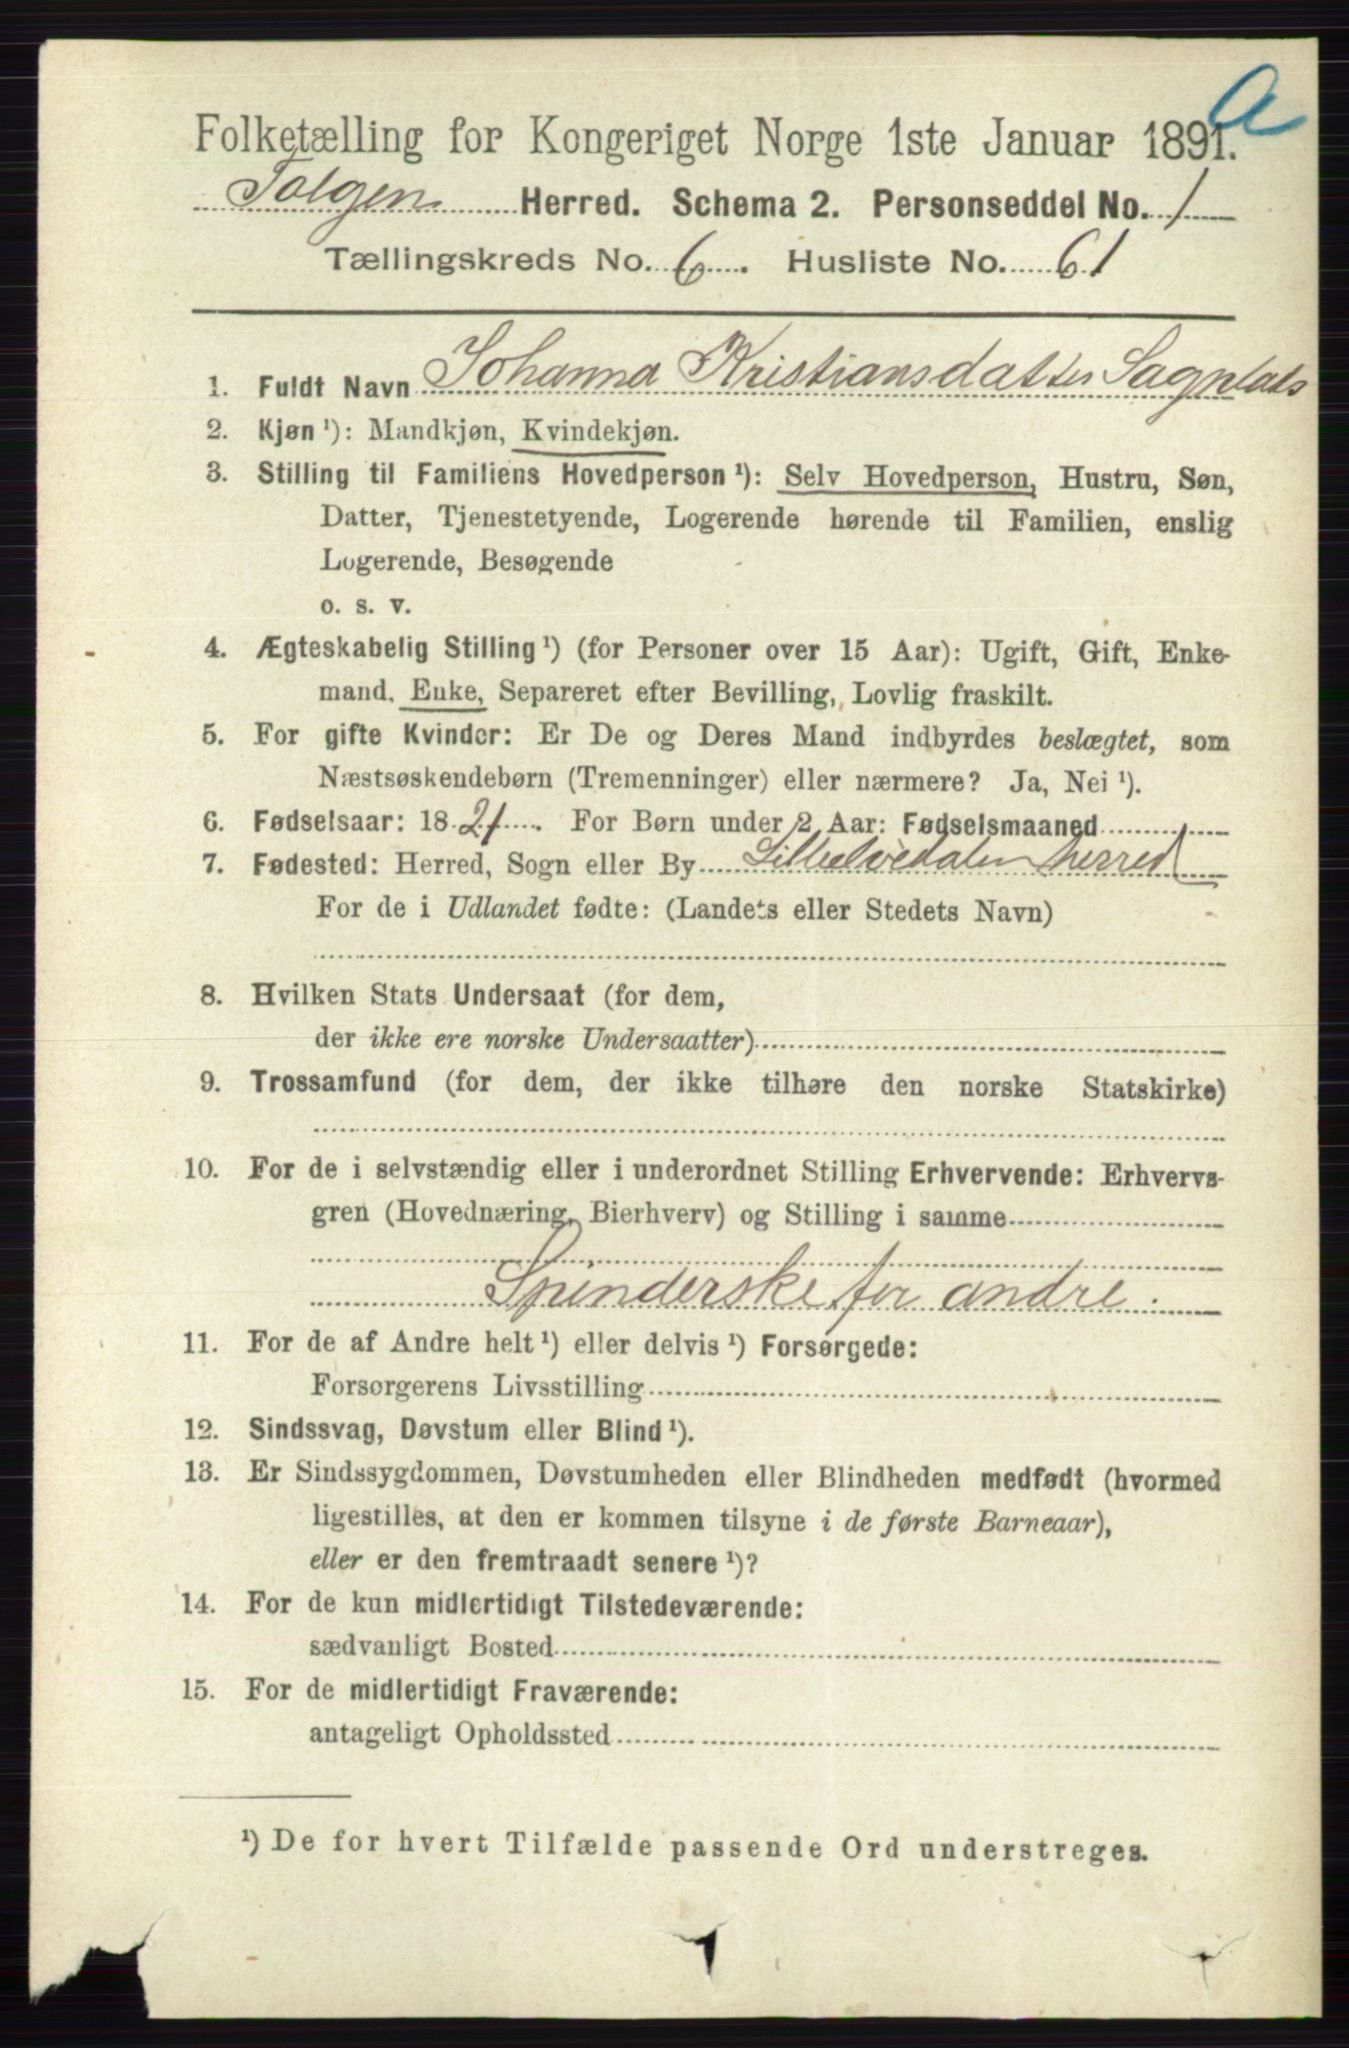 a
Folketælling for Kongeriget Norge 1ste Januar 1891.
Tolgen Herred. Schema 2. Personseddel No. 1
Tællingskreds No. 6. Husliste No. 61
1. Fuldt Navn Johanna Kristiansdatter Sagplads
2. Kjøn ¹): Mandkjøn, Kvindekjøn.
3. Stilling til Familiens Hovedperson ¹): Selv Hovedperson, Hustru, Søn,
Datter, Tjenestetyende, Logerende hørende til Familien, enslig
Logerende, Besøgende
o. s. v.
4. Ægteskabelig Stilling ¹) (for Personer over 15 Aar): Ugift, Gift, Enke-
mand, Enke, Separeret efter Bevilling, Lovlig fraskilt.
5. For gifte Kvinder: Er De og Deres Mand indbyrdes beslægtet, som
Næstsøskendebørn (Tremenninger) eller nærmere? Ja, Nei ¹).
6. Fødselsaar: 1821. For Børn under 2 Aar: Fødselsmaaned
7. Fødested: Herred, Sogn eller By Lilleelvedalen herred
For de i Udlandet fødte: (Landets eller Stedets Navn)
8. Hvilken Stats Undersaat (for dem,
der ikke ere norske Undersaatter)
9. Trossamfund (for dem, der ikke tilhøre den norske Statskirke)
10. For de i selvstændig eller i underordnet Stilling Erhvervende: Erhvervs-
gren (Hovednæring, Bierhverv) og Stilling i samme
Spinderske for andre.
11. For de af Andre helt ¹) eller delvis ¹) Forsørgede:
Forsørgerens Livsstilling
12. Sindssvag, Døvstum eller Blind ¹).
13. Er Sindssygdommen, Døvstumheden eller Blindheden medfødt (hvormed
ligestilles, at den er kommen tilsyne i de første Barneaar),
eller er den fremtraadt senere ¹)?
14. For de kun midlertidigt Tilstedeværende:
sædvanligt Bosted
15. For de midlertidigt Fraværende:
antageligt Opholdssted
¹) De for hvert Tilfælde passende Ord understreges.